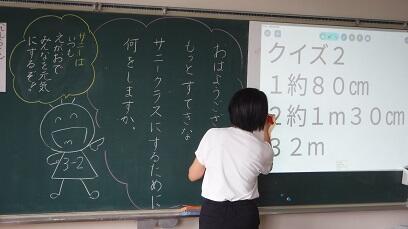 サニーは
いつも
えがおで
みんなを元気
にするぞ!
3-2
おはようござ
もっとすてきな
サニークラスにするために
何をしますか。
クイズ2
1約80㎝
2約1m30㎝
32m